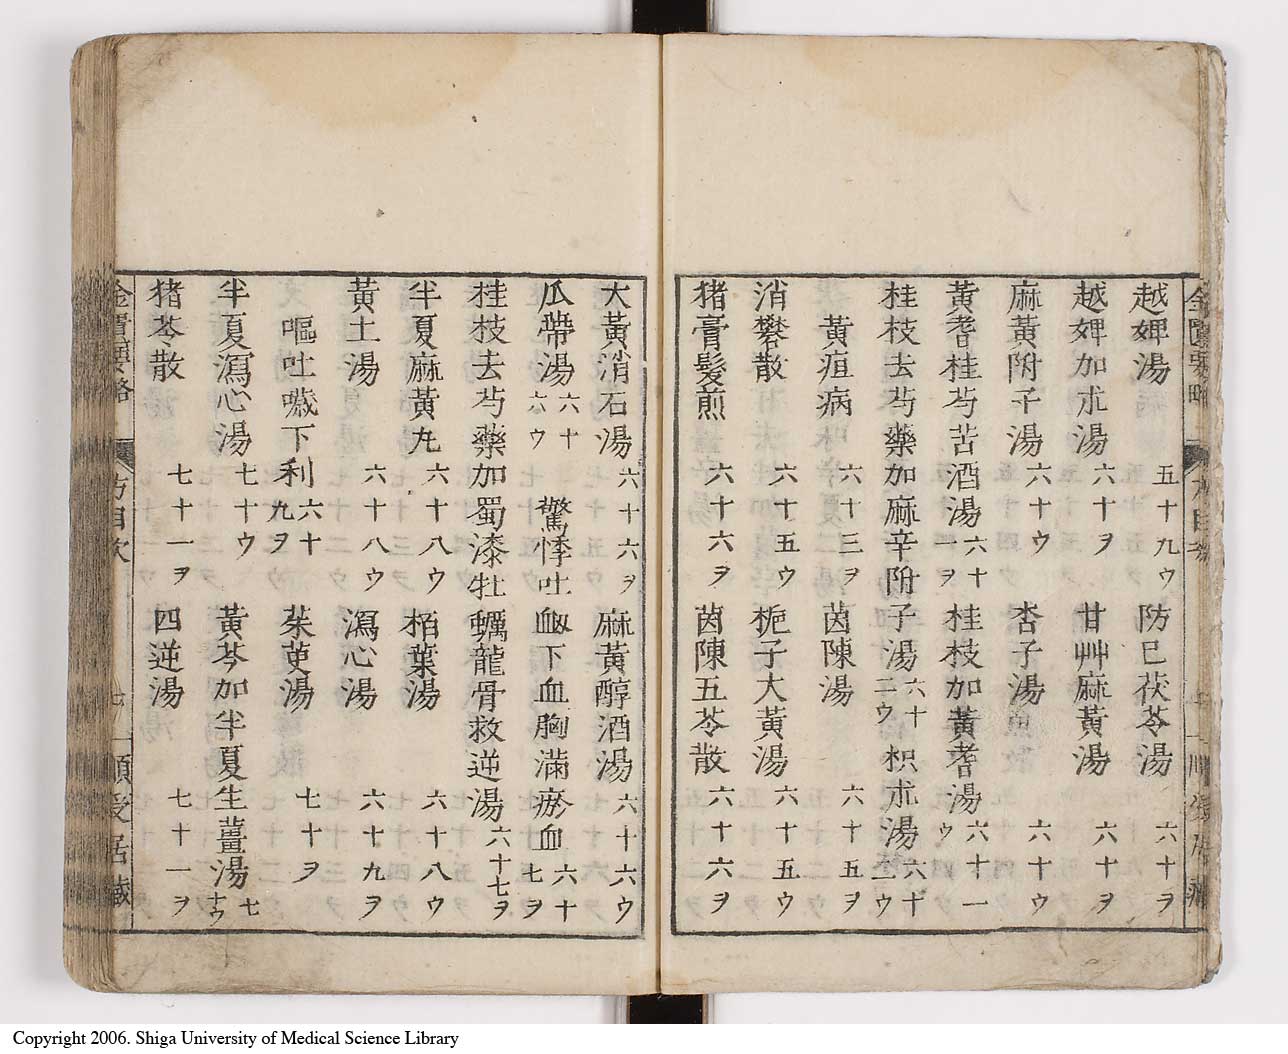 越婢湯 五十九ウ 防已茯苓湯 六十ヲ
越婢加朮湯 六十ヲ 甘艸麻黃湯 六十ヲ
麻黃附子湯 六十ウ 杏子湯 六十ウ
黃耆桂芍苦酒湯 六十一ヲ 桂枝加黃耆湯 六十一ウ
桂枝去芍藥加麻辛附子湯 六十二ウ 枳朮湯 六十二ウ
黃疸病 六十三ヲ 茵陳湯 六十五ヲ
消礬散 六十五ウ 梔子大黃湯 六十五ウ
猪膏髮煎 六十六ヲ 茵陳五苓散 六十六ヲ
大黃消石湯 六十六ヲ 麻黃醇酒湯 六十六ウ
瓜蔕湯 六十六ウ 驚悸吐衂下血胸滿瘀血 六十七ヲ
桂枝去芍藥加蜀漆牡蠣龍骨救逆湯 六十七ヲ
半夏麻黃丸 六十八ウ 栢葉湯 六十八ウ
黃土湯 六十八ウ 瀉心湯 六十九ヲ
嘔吐噦下利 六十九ヲ 茱萸湯 七十ヲ
半夏瀉心湯 七十ウ 黃芩加半夏生薑湯 七十ウ
猪苓散 七十一ヲ 四逆湯 七十一ヲ
方目次
Copyright 2006. Shiga University of Medical Science Library